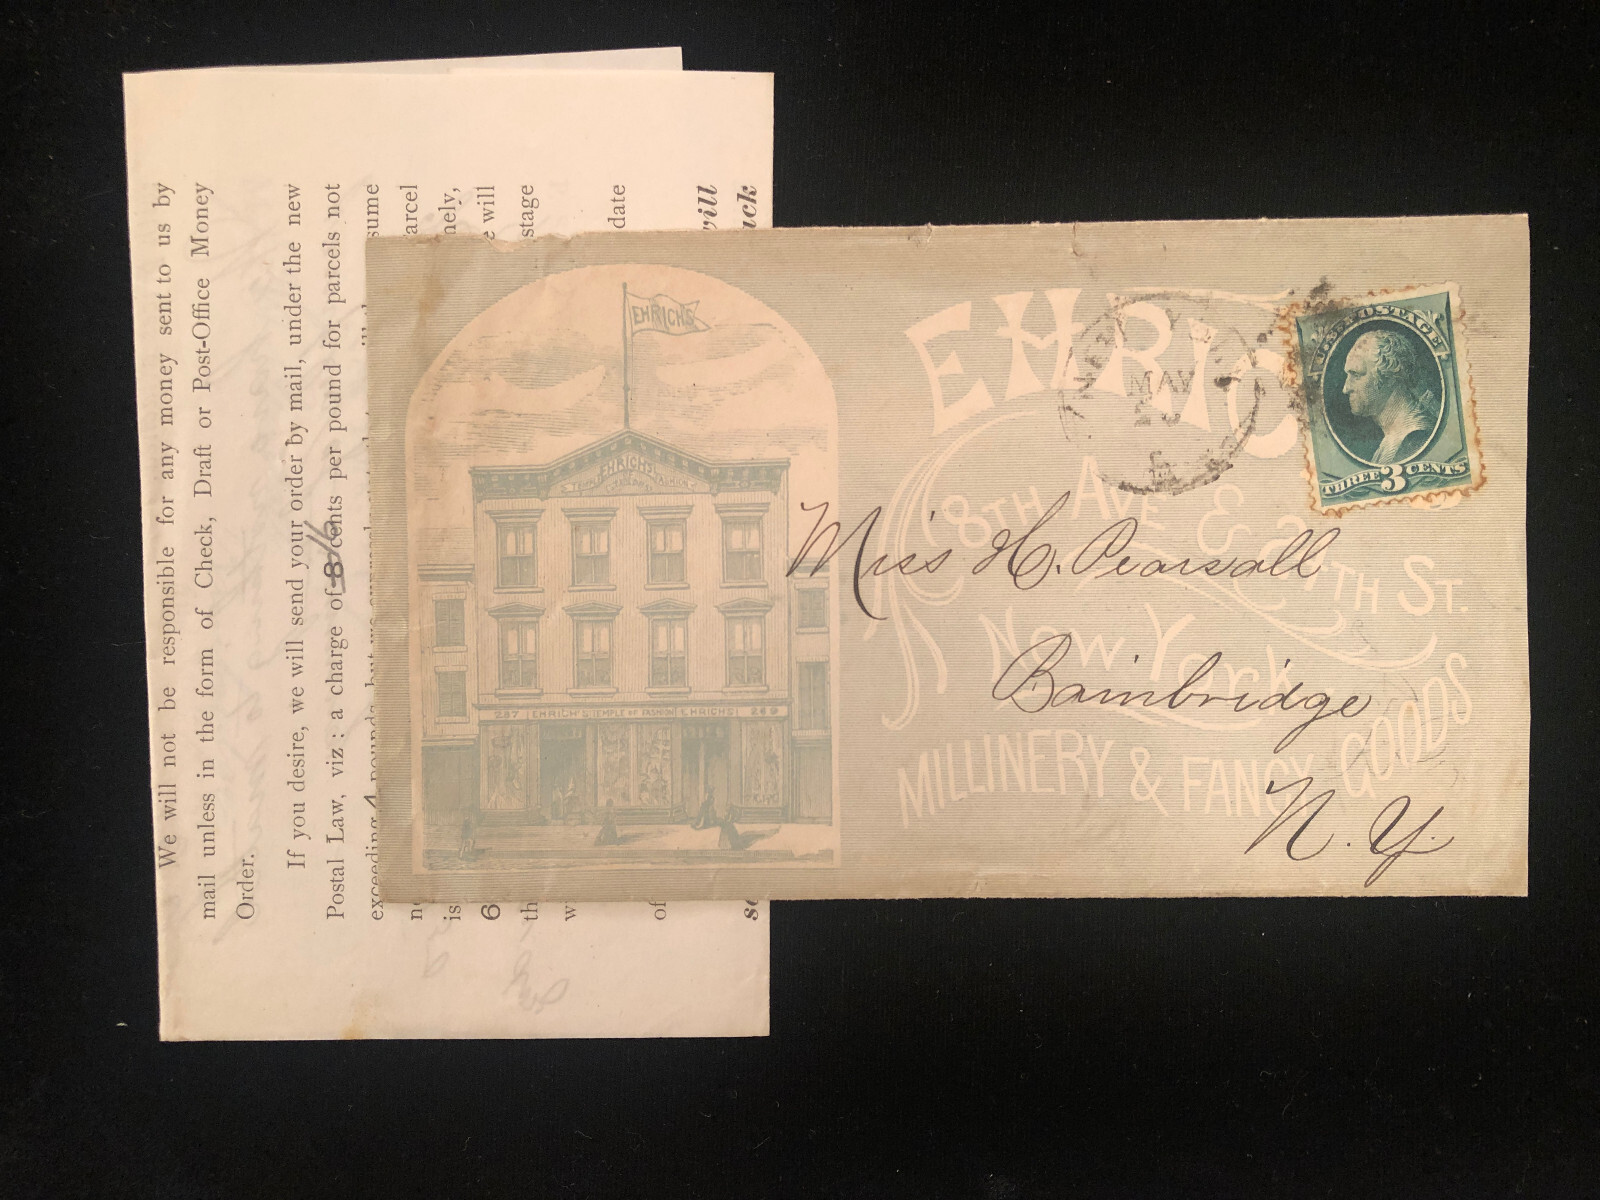 We will not be responsible for any money sent to us by
mail unless in the form of Check, Draft or Post-Office Money
Order.
If you desire, we will send your order by mail, under the new
Postal Law, viz : a charge of 8 cents per pound for parcels not
exceeding 4 pounds
sume
arcel
nely,
is
e will
6
stage
th
w
date
of
will
uck
so
EHRICH'S
EHRICH'S
TEMPLE FASHION
287 EHRICH'S TEMPLE OF FASHION EHRICHS 289
EHRIC
8TH AVE & 2 TH ST.
New York
MILLINERY & FANCY GOODS
NEW YORK
MAY
U.S. POSTAGE
THREE 3 CENTS
Miss H. Pearsall
Bainbridge
N. Y.